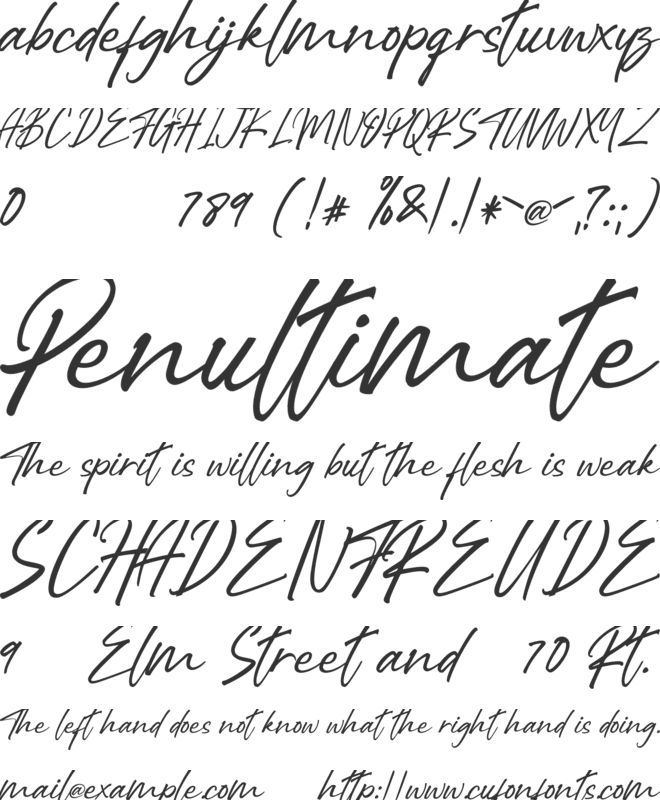 abcdefghijklmnopqrstuvwxyz
ABCDEFGHIJKLMNOPQRSTUVWXYZ
0 789 (!# %&/.|*`~@´~,.?:;)
Penultimate
The spirit is willing but the flesh is weak
SCHADENFREUDE
9 Elm Street and 70 Rt.
The left hand does not know what the right hand is doing.
mail@example.com http://www.cufonfonts.com